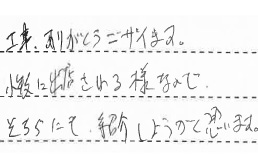 工事、ありがとうございます。
小牧に出店される様なので
そちらにも、紹介しようかと思います。